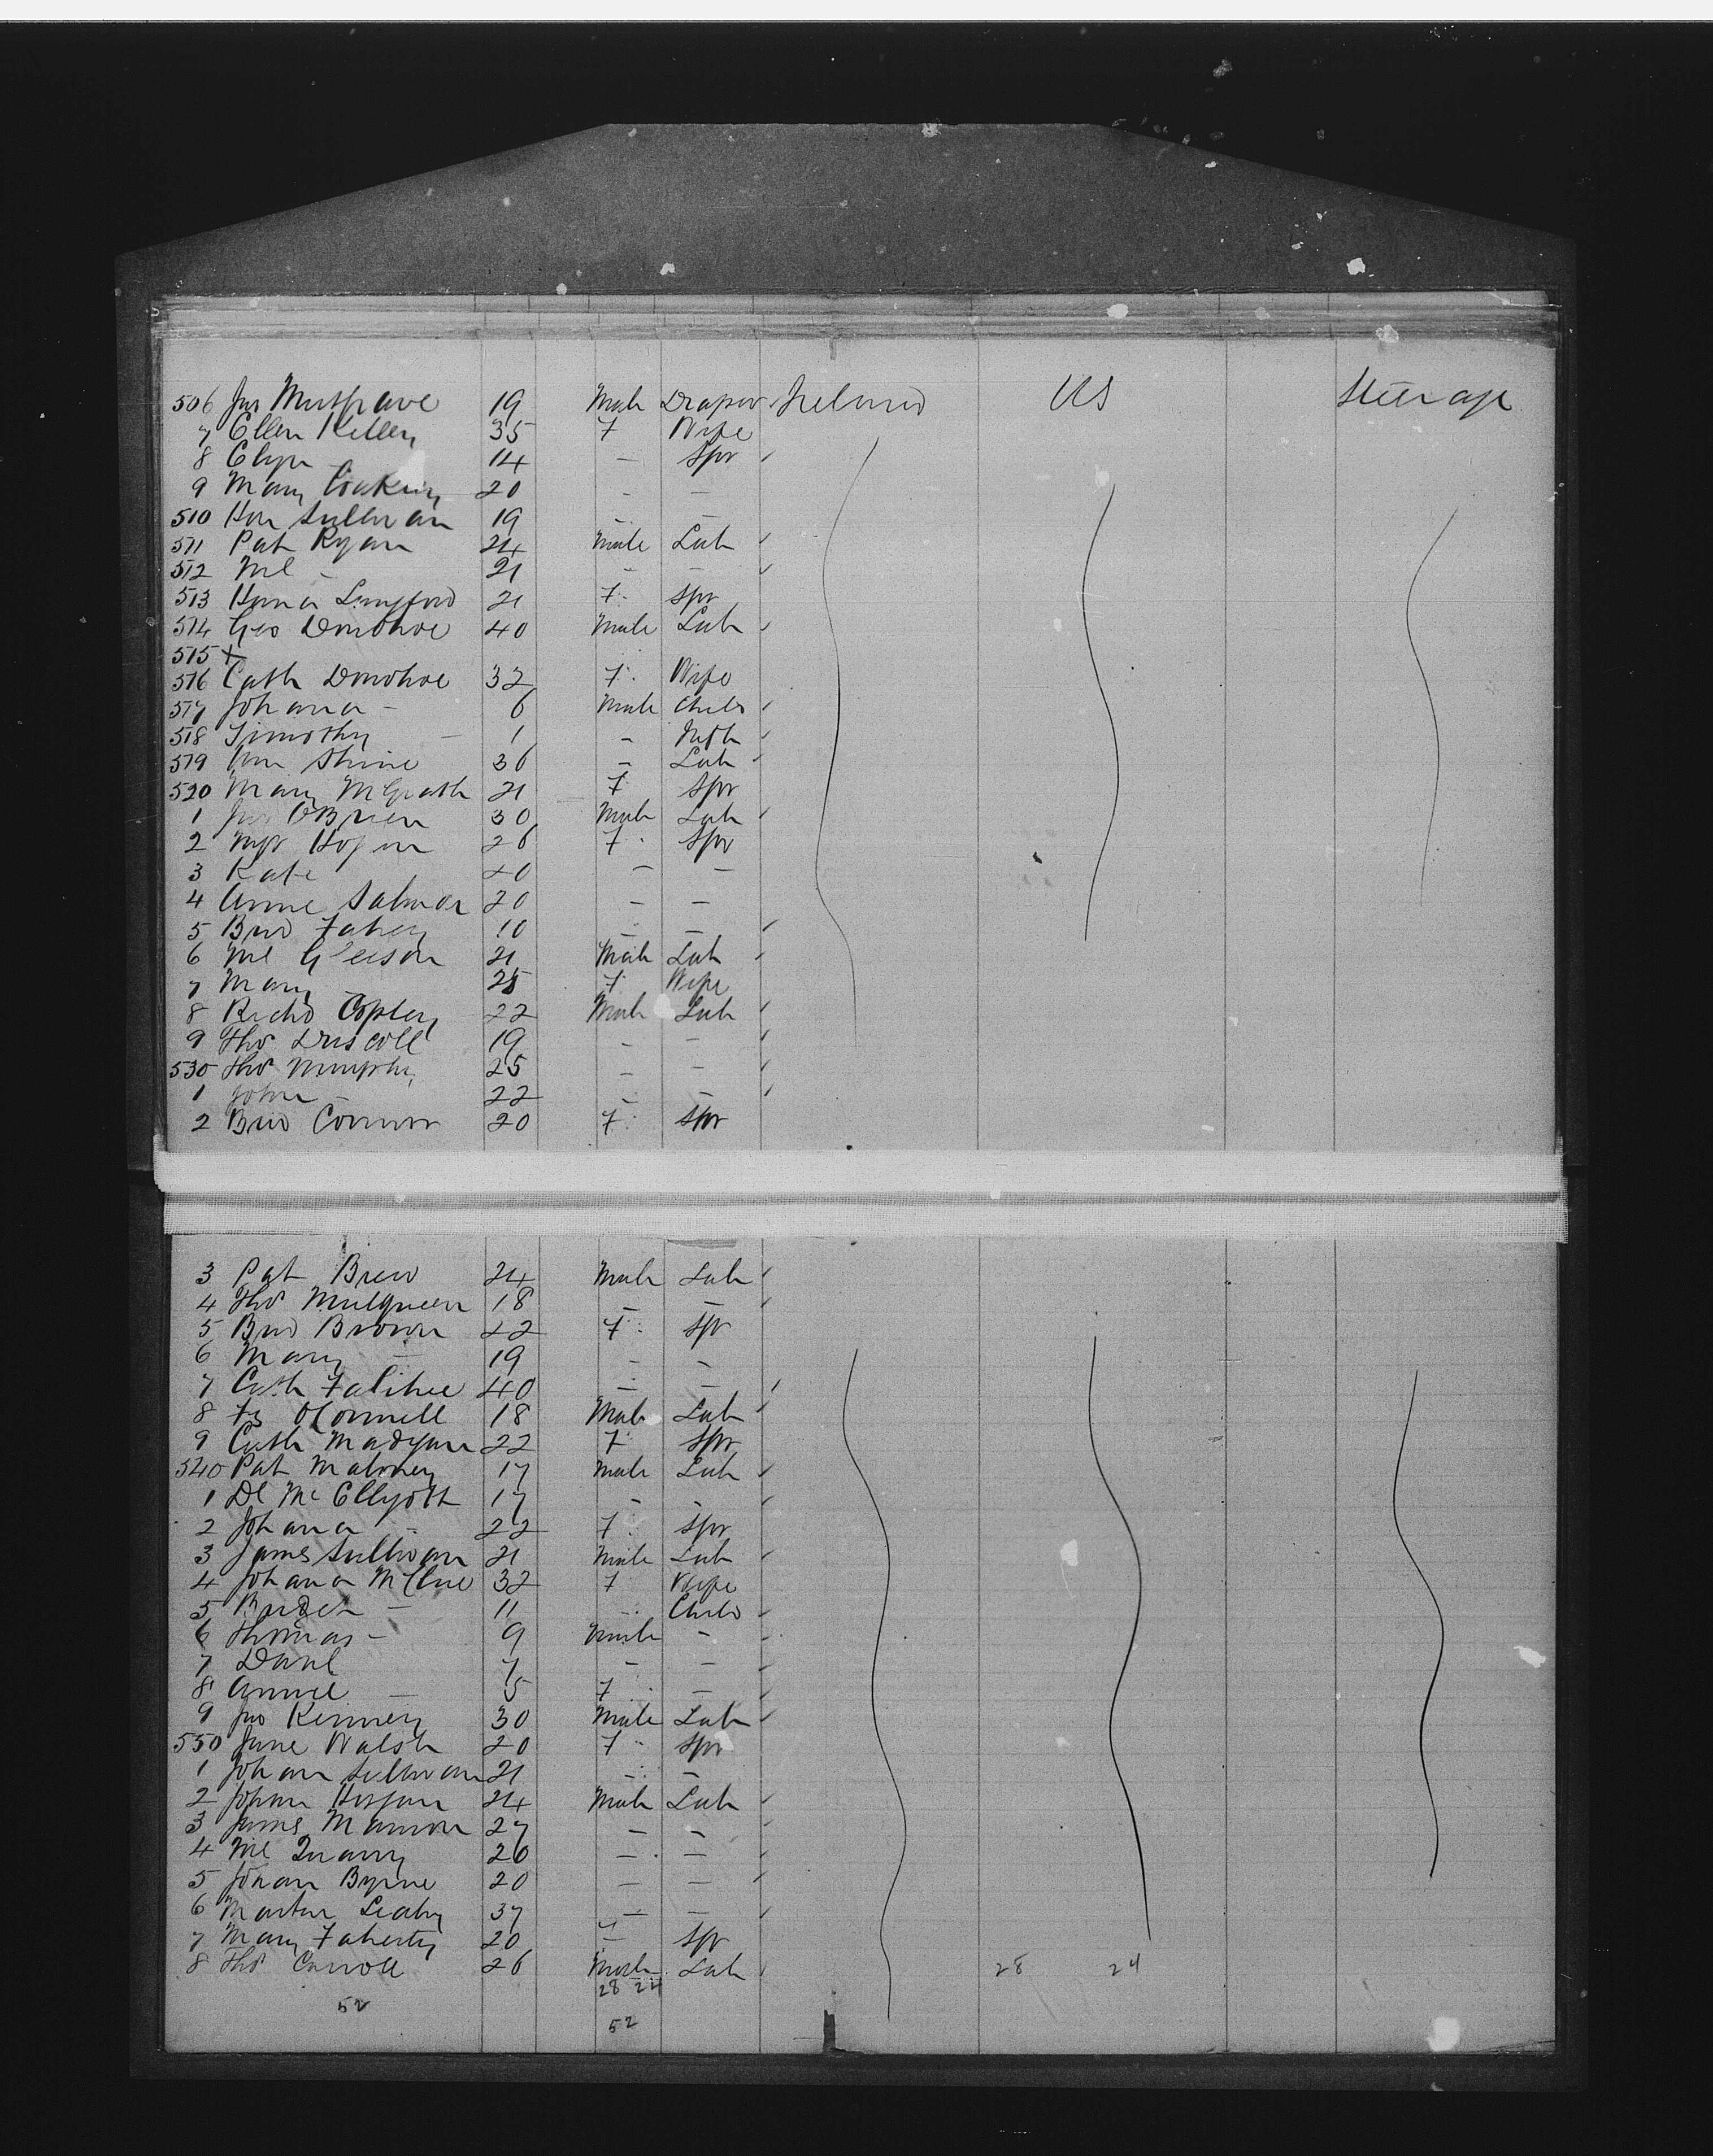 506 Jas Musgrave 19 Male Draper Ireland US Steerage
7 Ellen Kelley 35 F Wife
8 14 - Spr
9 Mary Coakley 20 - -
510 Hon Sullivan 19 - -
511 Pat Ryan 24 Male Lab
512 Ml - 21 - -
513 Hanna Langford 21 F Spr
514 Geo Donohoe 40 Male Lab
515 X
516 Cath Donohoe 32 F Wife
517 Johana - 6 Male Child
518 Timothy - 1 - Infth
519 Wm Shine 36 - Lab
520 Mary McGrath 21 F Spr
1 Jas OBrien 30 Male Lab
2 Mgt Hogan 26 F Spr
3 Kate 20 - -
4 Annie Salmon 20 - -
5 Brid Fahey 10 - -
6 Ml Gleeson 21 Male Lab
7 Mary - 25 F Wife
8 Richd Copley 22 Male Lab
9 Thos Driscoll 19 - -
530 Thos Murphy 25 - -
1 John - 22 - -
2 Brid Connor 20 F Spr
3 Pat Brew 24 Male Lab
4 Thos Mulqueen 18 - -
5 Brid Brown 22 F Spr
6 Mary - 19 - -
7 Cath Falihee 40 - -
8 OConnell 18 Male Lab
9 Cath Madigan 22 F Spr
540 Pat Maloney 17 Male Lab
1 Dl McEllyott 17 - -
2 Johana - 22 F Spr
3 James Sullivan 21 Male Lab
4 Johana 32 F Wife
5 - 11 - Child
6 Thomas - 9 Male -
7 Danl 7 - -
8 Annie - 5 F -
9 Jno Kenney 30 Male Lab
550 Jane Walsh 20 F Spr
1 Johan Sullivan 21 - -
2 Johan 24 Male Lab
3 James Mannon 27 - -
4 Ml 26 - -
5 Johan Byrne 20 - -
6 Martin Leahy 37 - -
7 Mary Faherty 20 F Spr
8 Thos Carroll 26 Male Lab 28 24
28 24
52
52